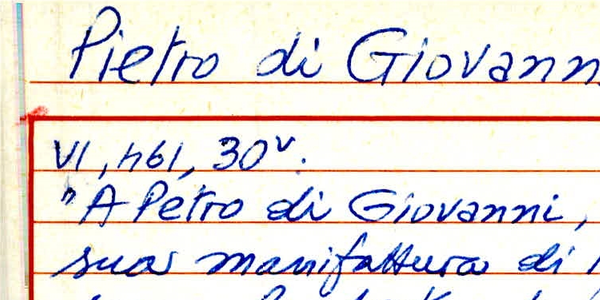 Pietro di Giovann
VI, 1461, 30v.
"A Petro di Giovanni,
sua manifattura di